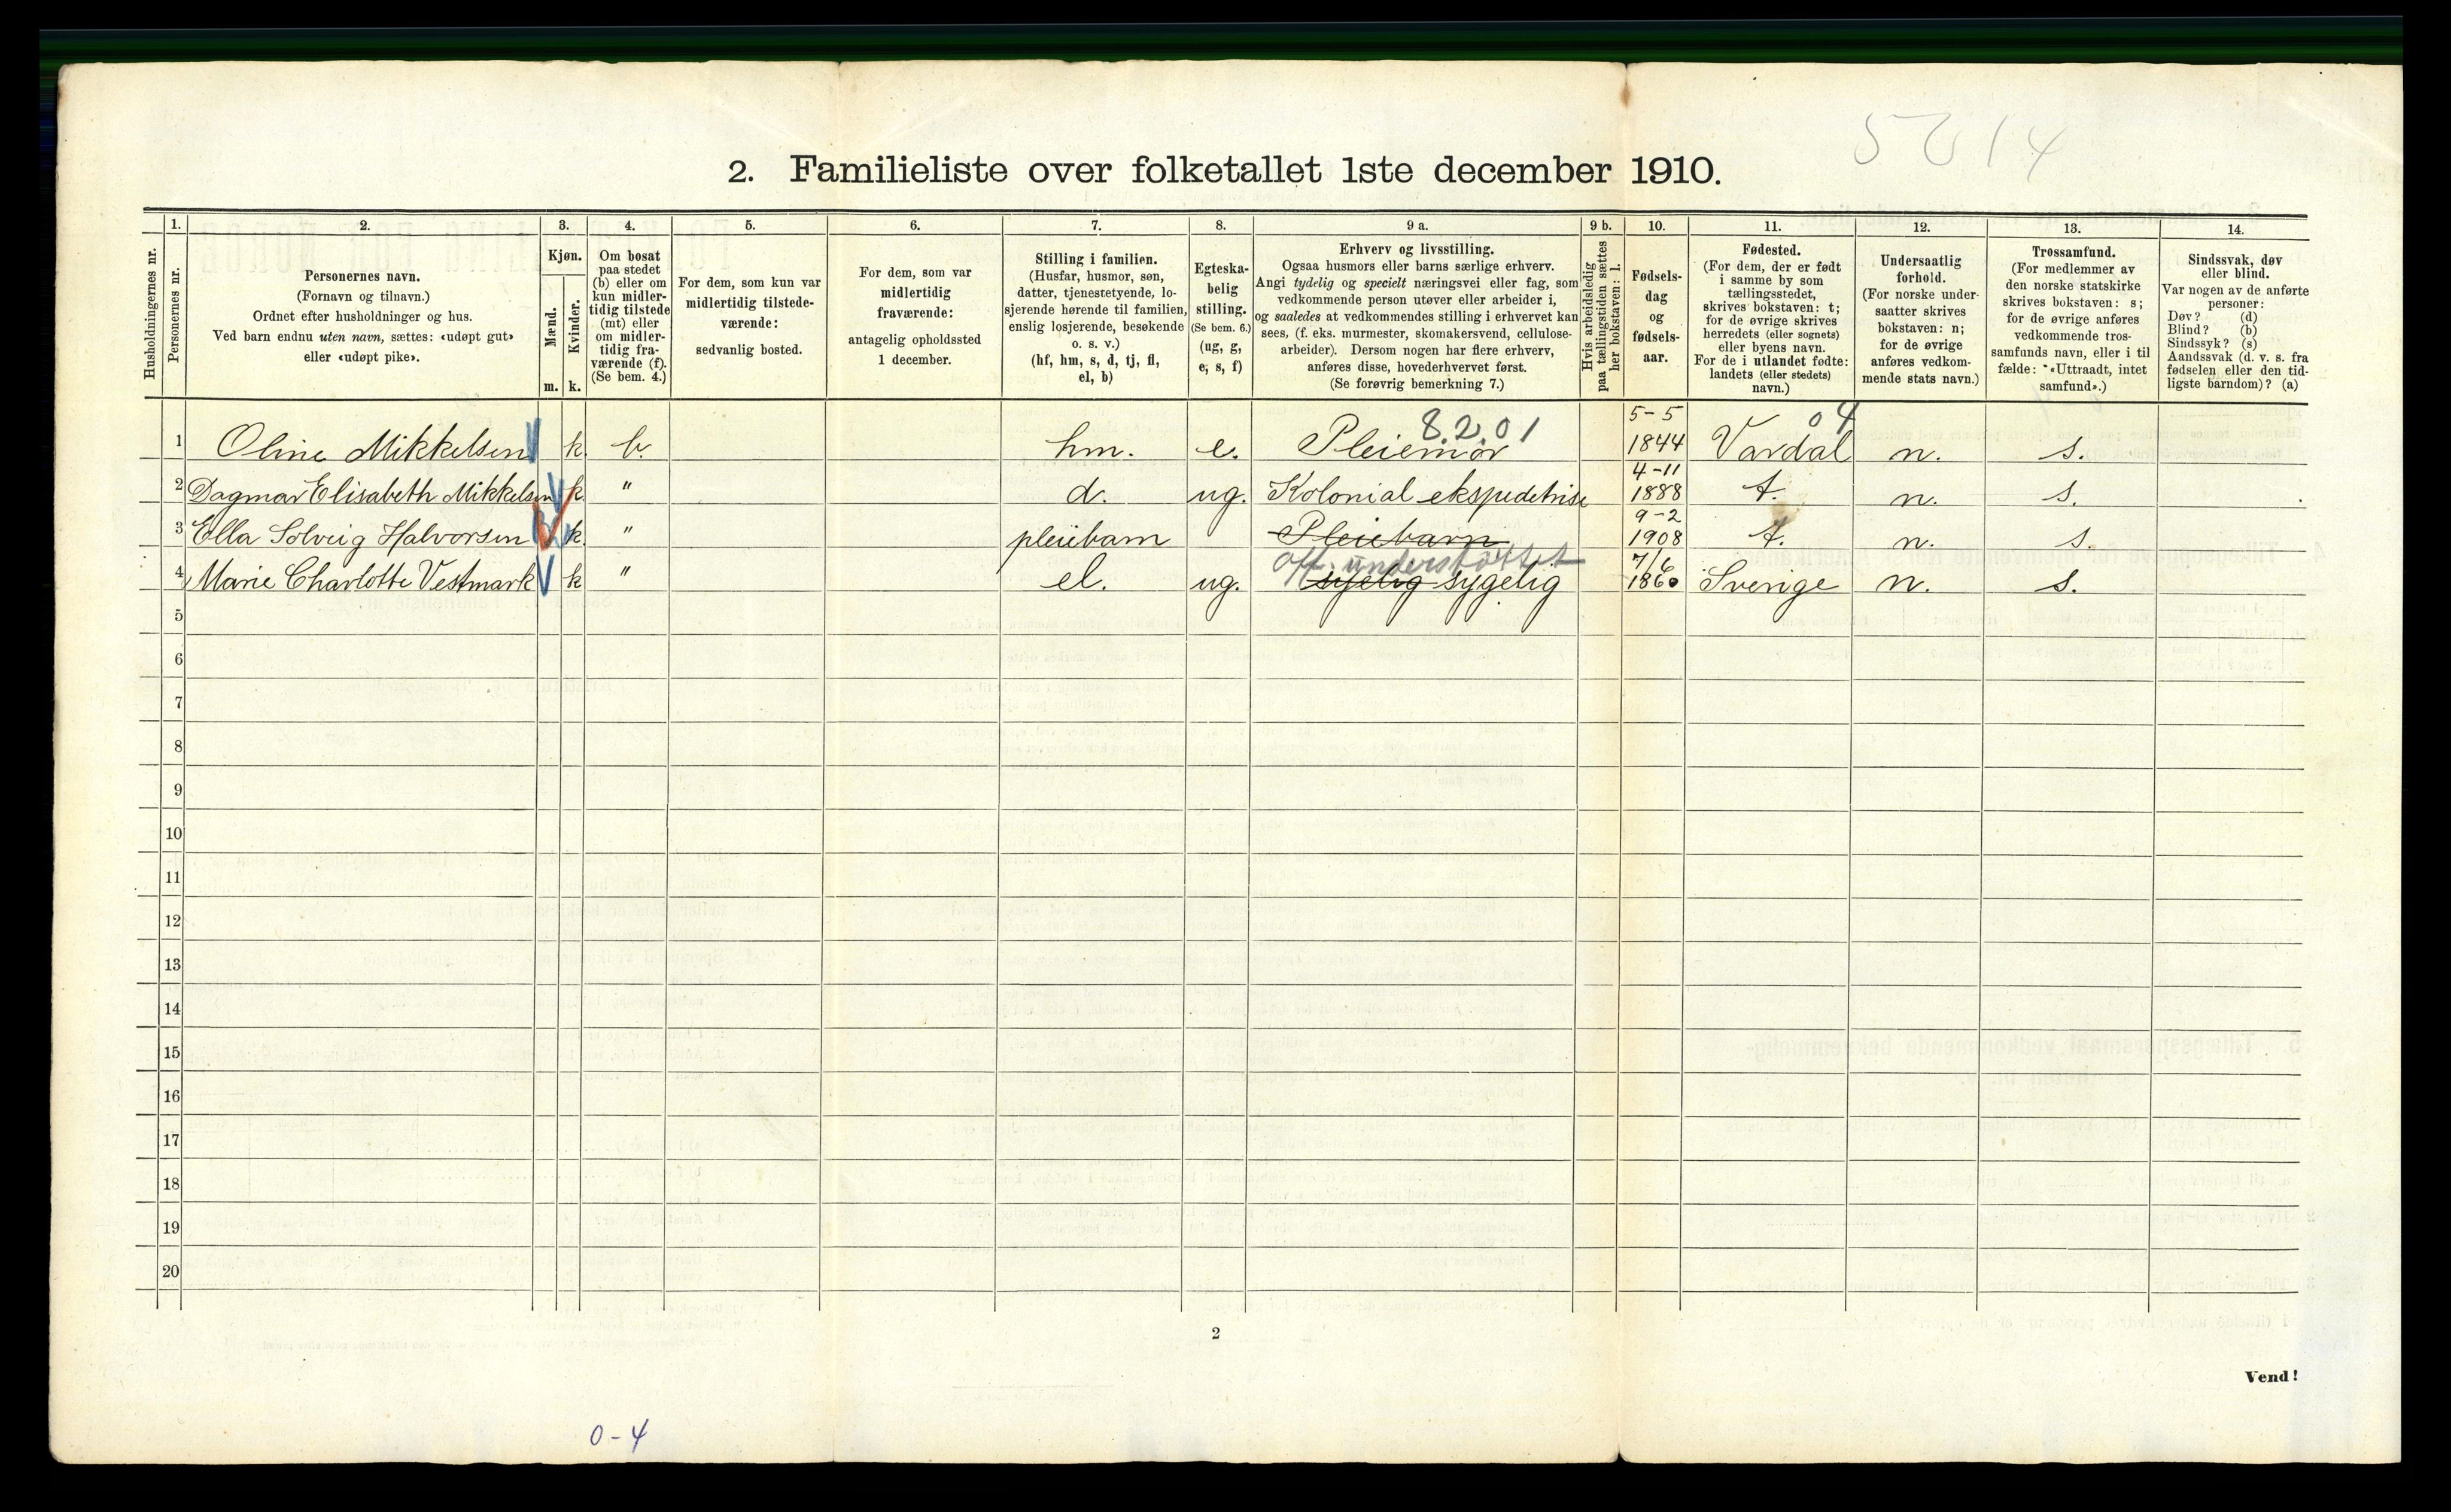 5014
2. Familieliste over folketallet 1ste december 1910.
1. 2. 3. 4. 5. 6. 7. 8. 9 a. 9 b. 10. 11. 12. 13. 14.
Husholdningernes nr.
Personernes nr.
Personernes navn.
(Fornavn og tilnavn.)
Ordnet efter husholdninger og hus.
Ved barn endnu uten navn, sættes: «udøpt gut»
eller «udøpt pike».
Kjøn.
Mænd.
m.
Kvinder.
k.
Om bosat
paa stedet
(b) eller om
kun midler-
tidig tilstede
(mt) eller
om midler-
tidig fra-
værende (f).
(Se bem. 4.)
For dem, som kun var
midlertidig tilstede-
værende:
sedvanlig bosted.
For dem, som var
midlertidig
fraværende:
antagelig opholdssted
1 december.
Stilling i familien.
(Husfar, husmor, søn,
datter, tjenestetyende, lo-
sjerende hørende til familien,
enslig losjerende, besøkende
o. s. v.)
(hf, hm, s, d, tj, fl,
el, b)
Egteska-
belig
stilling.
(Se bem. 6.)
(ug, g,
e, s, f)
Erhverv og livsstilling.
Ogsaa husmors eller barns særlige erhverv.
Angi tydelig og specielt næringsvei eller fag, som
vedkommende person utøver eller arbeider i,
og saaledes at vedkommendes stilling i erhvervet kan
sees, (f. eks. murmester, skomakersvend, cellulose-
arbeider). Dersom nogen har flere erhverv,
anføres disse, hovederhvervet først.
(Se forøvrig bemerkning 7.)
Hvis arbeidsledig
paa tællingstiden sættes
her bokstaven: l.
Fødsels-
dag
og
fødsels-
aar.
Fødested.
(For dem, der er født
i samme by som
tællingsstedet,
skrives bokstaven: t;
for de øvrige skrives
herredets (eller sognets)
eller byens navn.
For de i utlandet fødte:
landets (eller stedets)
navn.)
Undersaatlig
forhold.
(For norske under-
saatter skrives
bokstaven: n;
for de øvrige
anføres vedkom-
mende stats navn.)
Trossamfund.
(For medlemmer av
den norske statskirke
skrives bokstaven: s;
for de øvrige anføres
vedkommende tros-
samfunds navn, eller i til
fælde: «Uttraadt, intet
samfund».)
Sindssvak, døv
eller blind.
Var nogen av de anførte
personer:
Døv? (d)
Blind? (b)
Sindssyk? (s)
Aandssvak (d. v. s. fra
fødselen eller den tid-
ligste barndom)? (a)
8.2.01 5-5 04
1 Oline Mikkelsen k. b. hm. e. Pleiemor 1844 Vardal n. s.
4-11
2 Dagmar Elisabeth Mikkelsen k. " d. ug. Kolonial ekspedetrise 1888 t. n. s.
9-2
3 Ella Solveig Halvorsen k. " pleiebarn Pleiebarn 1908 t. n. s.
off. understöttet 7/6
4 Marie Charlotte Vestmark k " el. ug. sygelig sygelig 1860 Sverige n. s.
5
6
7
8
9
10
11
12
13
14
15
16
17
18
19
20
2
Vend!
0-4